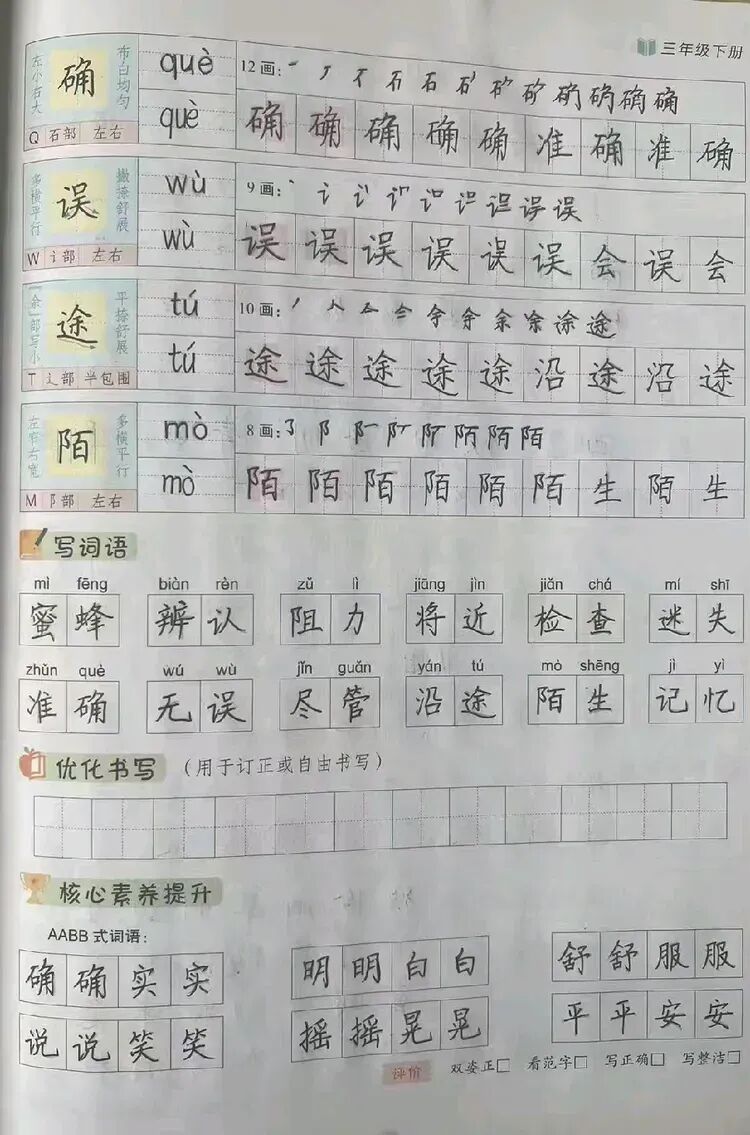 三年级下册
左小右大 确 布白均匀 què 12画:
Q 石部 左右 què 确 确 确 确 确 准 确 准 确
多横平行 误 撇捺舒展 wù 9画:
W 讠部 左右 wù 误 误 误 误 误 误 会 误 会
「余」部写小 途 平捺舒展 tú 10画:
T 辶部 半包围 tú 途 途 途 途 途 沿 途 沿 途
左窄右宽 陌 多横平行 mò 8画:
M 阝部 左右 mò 陌 陌 陌 陌 陌 陌 生 陌 生
写词语
mì fēng biàn rèn zǔ lì jiāng jìn jiǎn chá mí shī
蜜蜂 辨认 阻力 将近 检查 迷失
zhǔn què wú wù jǐn guǎn yán tú mò shēng jì yì
准确 无误 尽管 沿途 陌生 记忆
优化书写 (用于订正或自由书写)
核心素养提升
AABB式词语:
确确实实 明明白白 舒舒服服
说说笑笑 摇摇晃晃 平平安安
评价 双姿正□ 看范字□ 写正确□ 写整洁□